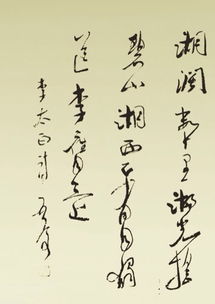 湖闊數十里湖光摇
碧山湖西正有月獨
送李膺還
李太白詩